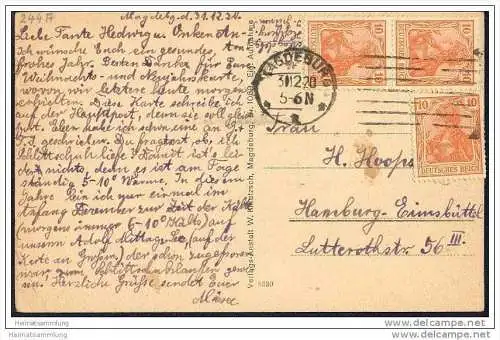 244A
Magdebg. d. 31.12.20.
Liebe Tante Hedwig u. Onkel
Ich wünsche Euch ein gesundes u.
frohes Jahr. Besten Dank für Eure
Weihnachts- und Neujahrskarte,
wovon wir letztere heute morgen
erhielten. Diese Karte schreibe ich
auf der Hauptpost, denn sie soll gleich
fort. Eben habe ich schon eine an
geschrieben. Du fragtest, ob ich
Schlittschuh liefe? Damit ist's lei-
der nichts, denn es ist am Tage
ständig 5-10° Wärme. In diesem
Jahre bin ich nur einmal im
Anfang Dezember zur Zeit der Kälte
(morgens immer 6-10° Kalt) auf
unserm Adolf Mittag-See, (auf der
Karte an Großen) der schon zugefroren
war zum Schlittschuhlaufen gewe-
sen. Herzliche Grüße sendet Euer
MAGDEBURG
31.12.20
5-6 N
10 10
10
DEUTSCHES REICH
Frau
H. Hoops
Hamburg-Eimsbüttel
Lutterothstr. 56 III.
Verlags-Anstalt W. Magdeburg
www.heimatsammlung.de
Heimatsammlung.de
Heimatsammlung.de